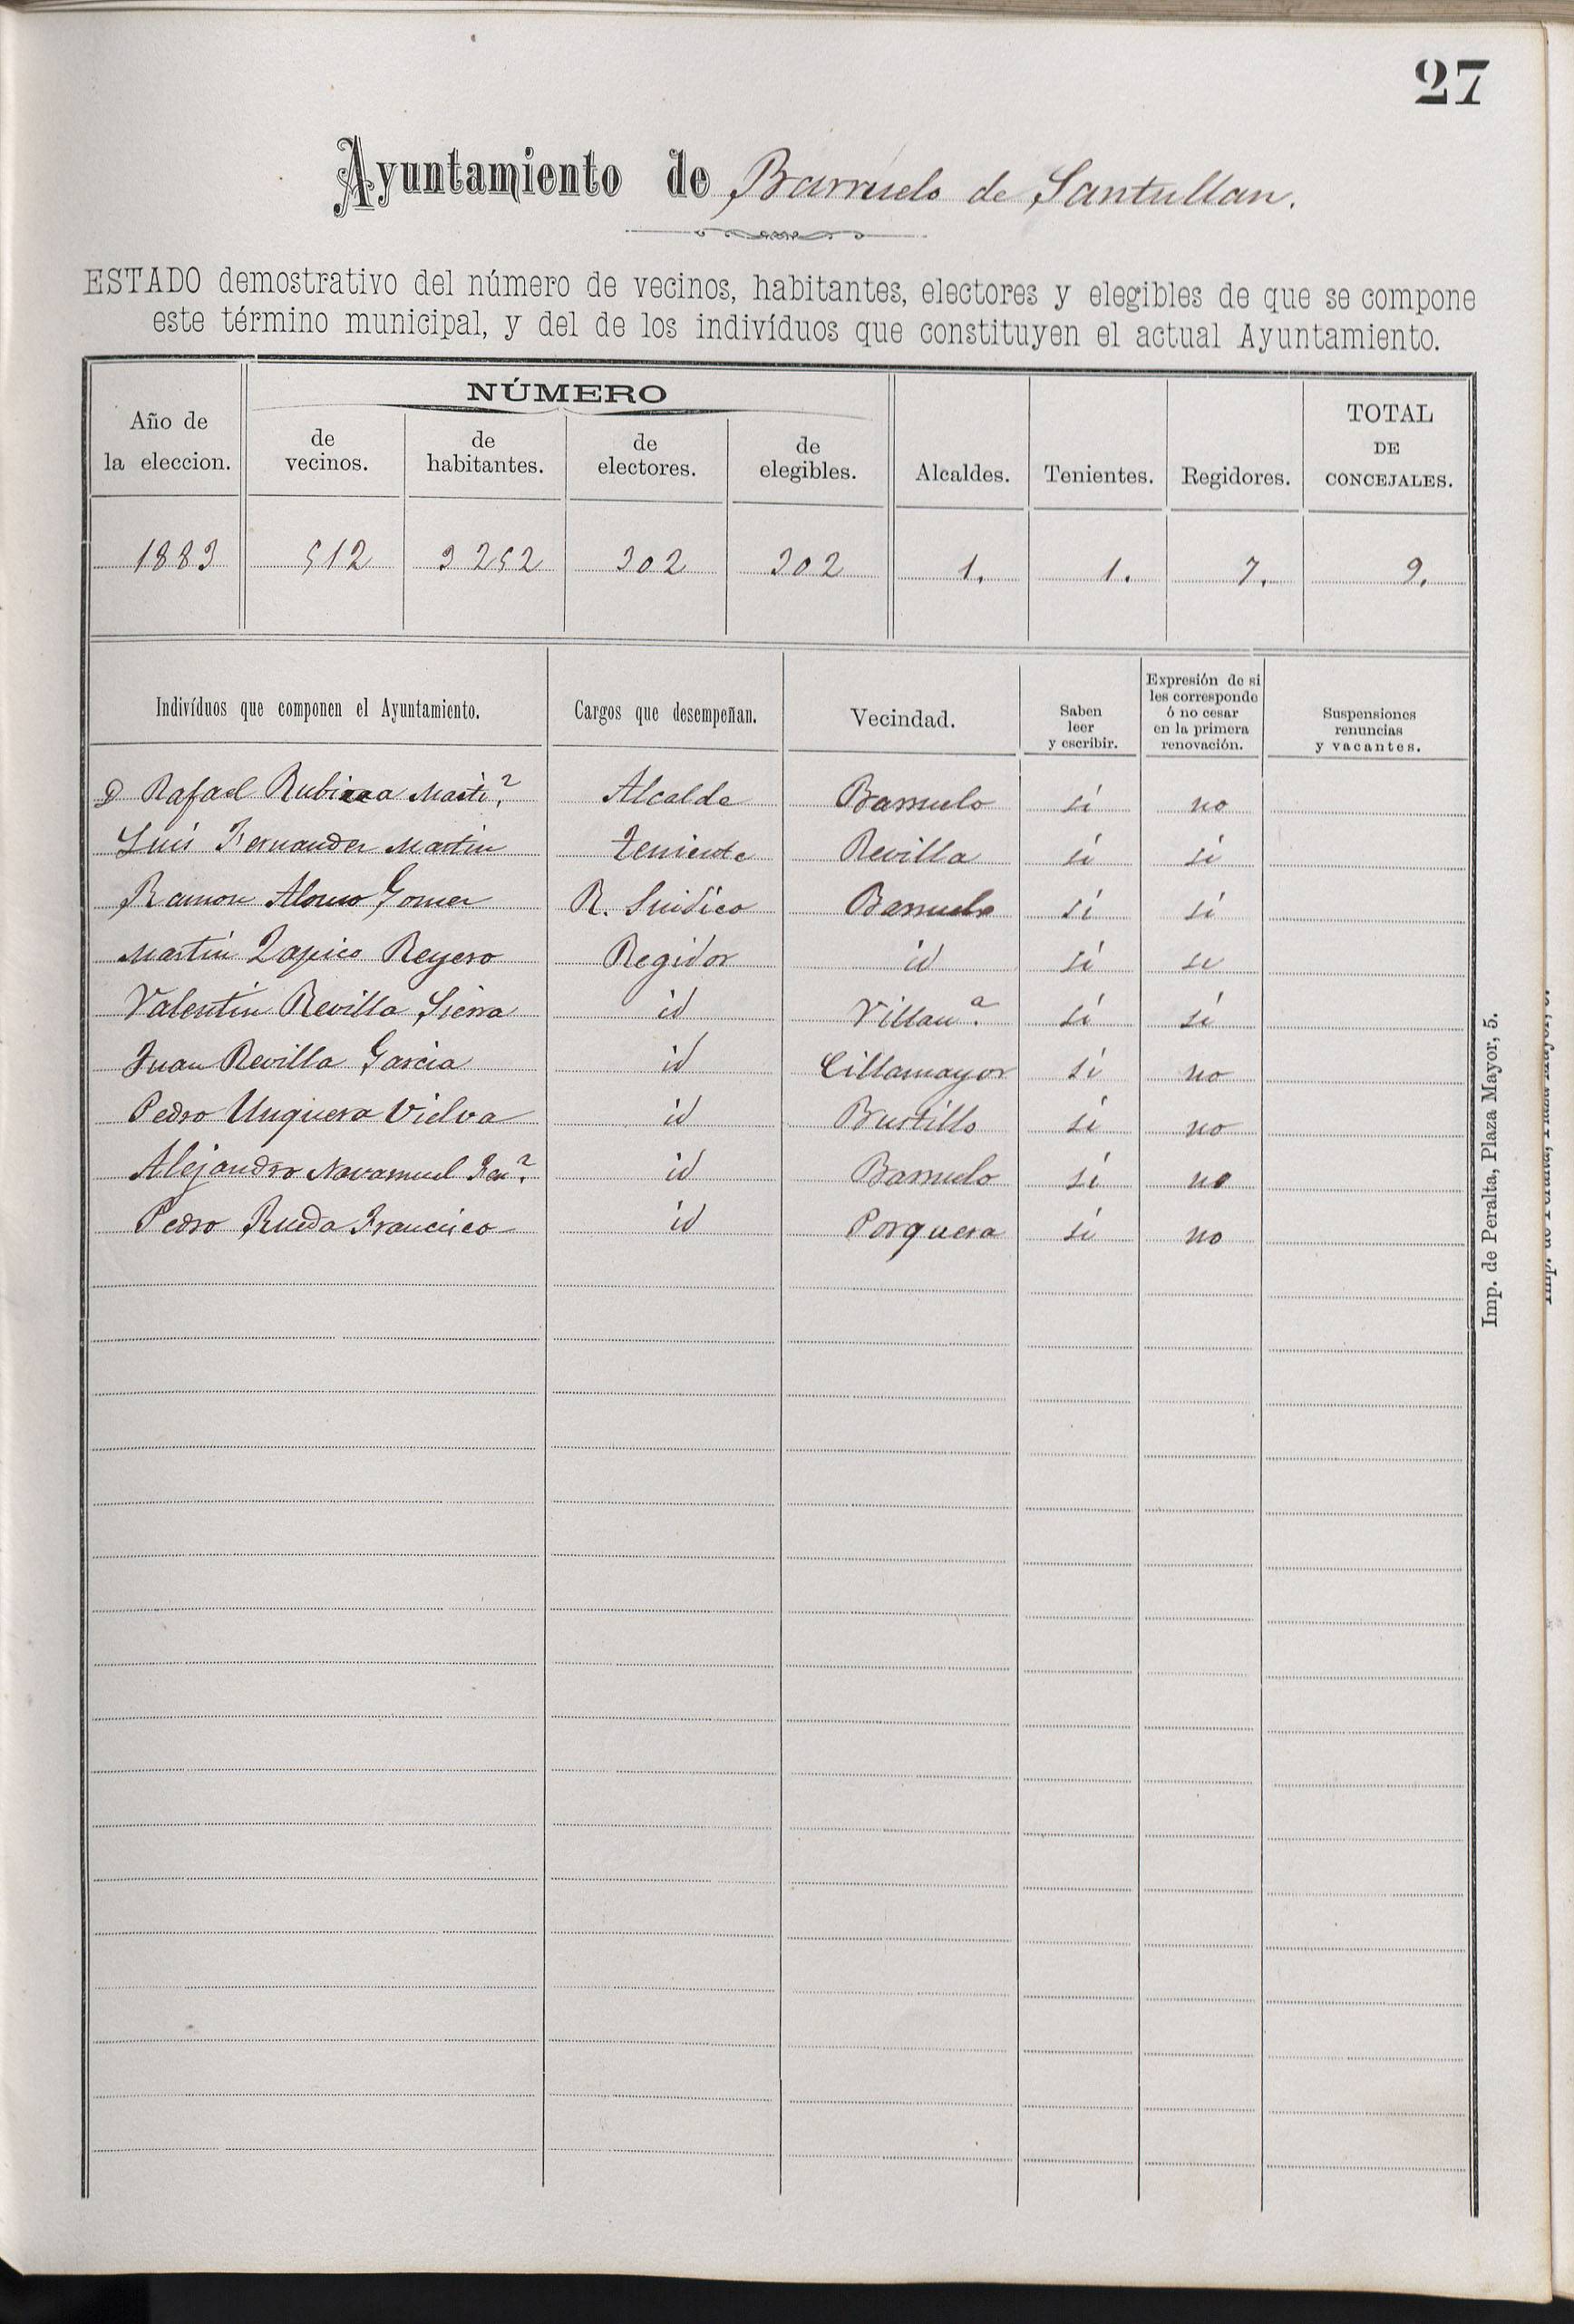 27
Ayuntamiento de Barruelo de Santullan.
ESTADO demostrativo del número de vecinos, habitantes, electores y elegibles de que se compone
este término municipal, y del de los indivíduos que constituyen el actual Ayuntamiento.
Año de la eleccion. NÚMERO de vecinos. de habitantes. de electores. de elegibles. Alcaldes. Tenientes. Regidores. TOTAL DE CONCEJALES.
1883 512 3252 302 302 1. 1. 7. 9.
Indivíduos que componen el Ayuntamiento. Cargos que desempeñan. Vecindad. Saben leer y escribir. Expresión de si les corresponde ó no cesar en la primera renovación. Suspensiones renuncias y vacantes.
D Rafael Alcalde Barruelo si no
Luis Fernandez Martin Teniente Revilla si si
Ramon Alonso Gomez R. Sindico Barruelo si si
Martin Zapico Reyero Regidor id si si
Valentin Revilla Sierra id Villanª. si si
Juan Revilla Garcia id Cillamayor si no
Pedro Unquera Vielva id Bustillo si no
Alejandro Navamuel id Barruelo si no
Pedro Rueda Francisco id Porquera si no
Imp. de Peralta, Plaza Mayor, 5.